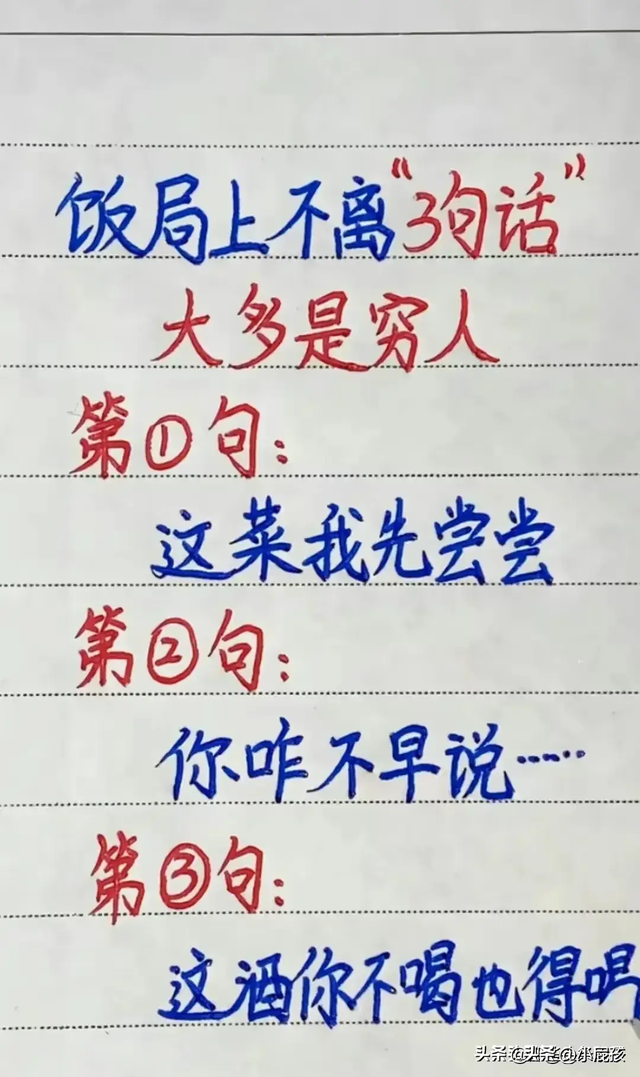 饭局上不离“3句话”
大多是穷人
第①句:
这菜我先尝尝
第②句:
你咋不早说……
第③句:
这酒你不喝也得喝